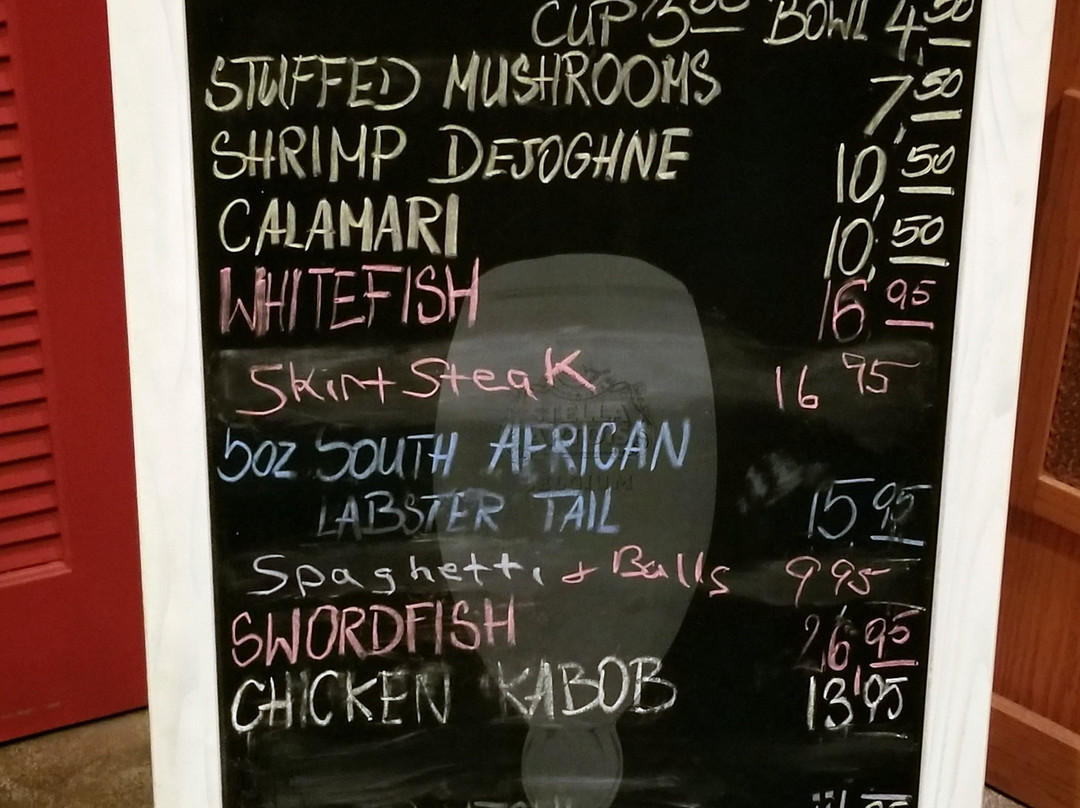 CUP 3.00 BOWL 4.50
STUFFED MUSHROOMS 7.50
SHRIMP DEJOGHNE 10.50
CALAMARI 10.50
WHITEFISH 16 95
Skirt Steak 16 95
5oz SOUTH AFRICAN
LABSTER TAIL 15.95
Spaghetti & Balls 9 95
SWORDFISH 26.95
CHICKEN KABOB 13.95
STELLA
BELGIUM